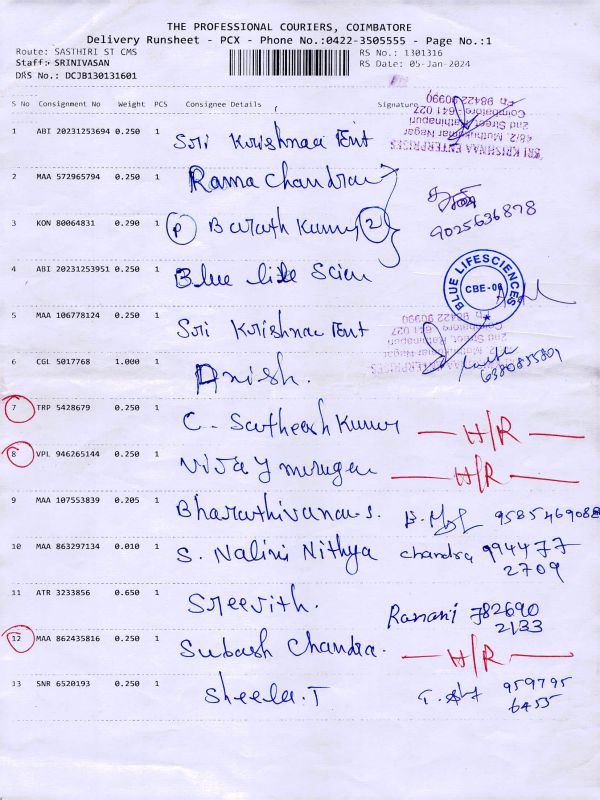 THE PROFESSIONAL COURIERS, COIMBATORE
Delivery Runsheet - PCX - Phone No.:0422-3505555 - Page No.:1
Route: SASTHIRI ST CMS
RS No.: 1301316
Staff: SRINIVASAN
RS Date: 05-Jan-2024
DRS No.: DCJB130131601
S No Consignment No Weight PCS Consignee Details Signature
1 ABI 20231253694 0.250 1 Sri Krishnaa Ent
SRI KRISHNAA ENTERPRISES
48/2, Muthukumar Nagar
2nd Street, Rathinapuri
Coimbatore - 641 027
Ph 98422 90990
2 MAA 572965794 0.250 1 Rama Chandran
9025636878
3 KON 80064831 0.290 1 P Barath Kumar 2
4 ABI 20231253951 0.250 1 Blue life Scien
BLUE LIFESCIENCES
CBE-06
5 MAA 106778124 0.250 1 Sri Krishnaa Ent
SRI KRISHNAA ENTERPRISES
48/2, Muthukumar Nagar
2nd Street, Rathinapuri
Coimbatore - 641 027
Ph 98422 90990
6 CGL 5017768 1.000 1 Anish.
6380855801
7 TRP 5428679 0.250 1 C. Satheesh Kumar H/R
8 VPL 946265144 0.250 1 Vijay murugan H/R
9 MAA 107553839 0.205 1 Bharathivanan.s. 9585469088
10 MAA 863297134 0.010 1 S. Nalini Nithya chandra 994477
2709
11 ATR 3233856 0.650 1 Sreevith. Ranani 782690
2133
12 MAA 862435816 0.250 1 Subash Chandra. H/R
13 SNR 6520193 0.250 1 Sheela.T 959795
6455